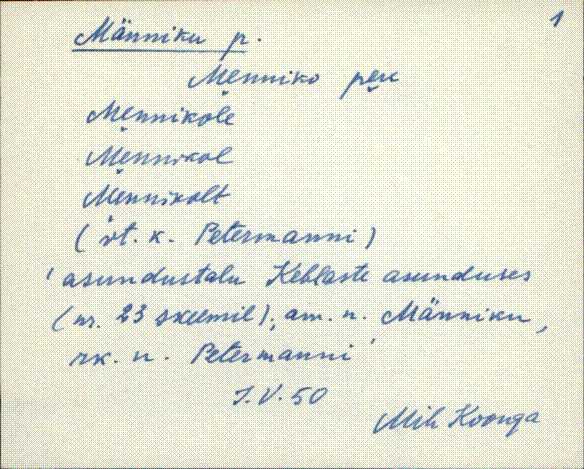 1
Männiku p.
Menniko peu
Mennikole
Mennikol
Mennikolt
(vt. k. Petermanni)
'asundustalu Keblaste asunduses
(nr. 23 skeemil); am. n. Männiku,
rk. n. Petermanni'
J.V. 50
Mih Koonga